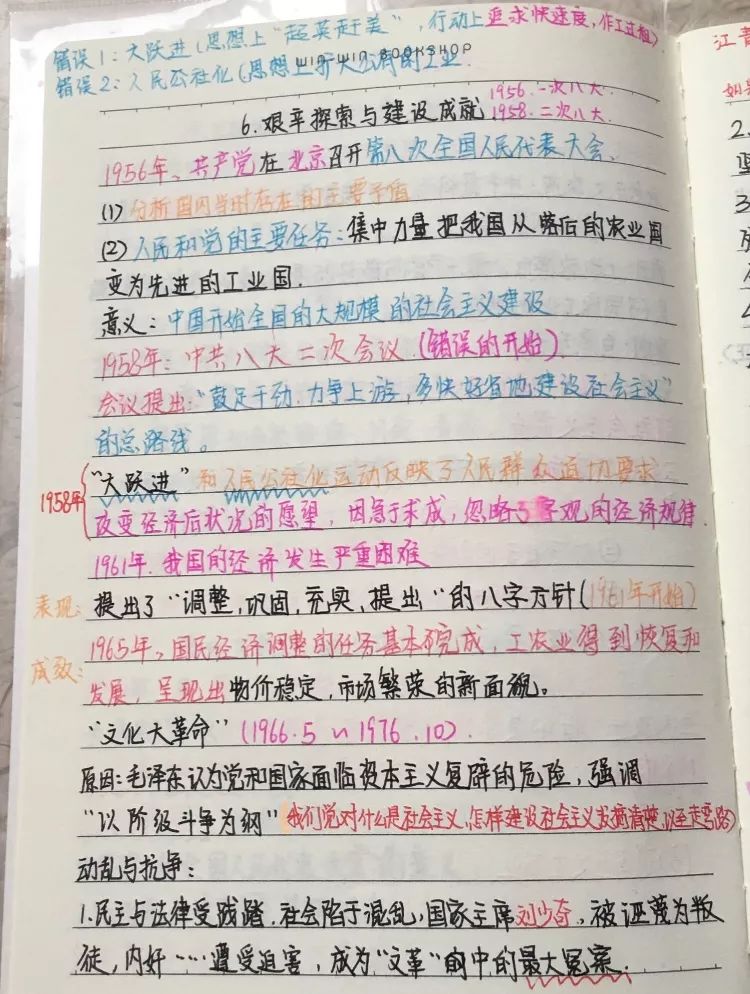 错误1:大跃进(思想上"超英赶美",行动上追求快速度,作工过粗)
WIN-WIN BOOKSHOP
错误2:人民公社化(思想上扩大公有的工业
1956.一次八大
6.艰辛探索与建设成就 1958.二次八大.
1956年、共产党在北京召开第八次全国人民代表大会、
(1)分析国内当时存在的主要矛盾
(2)人民和党的主要任务:集中力量把我国从落后的农业国
变为先进的工业国.
意义:中国开始全国的大规模的社会主义建设
1958年:中共八大二次会议.(错误的开始)
会议提出:"鼓足干劲.力争上游,多快好省地建设社会主义"
的总路线。
1958年 "大跃进"和人民公社化运动反映了人民群众迫切要求
改变经济后状况的愿望,因急于求成,忽略了客观的经济规律.
1961年.我国的经济发生严重困难
表现:提出了"调整,巩固,充实,提出"的八字方针(1961年开始)
成效:1965年、国民经济调整的任务基本完成,工农业得到恢复和
发展,呈现出物价稳定,市场繁荣的新面貌。
"文化大革命"(1966.5~1976.10).
原因:毛泽东认为党和国家面临资本主义复辟的危险,强调
"以阶级斗争为纲"(我们党对什么是社会主义,怎样建设社会主义没搞清楚,以至走弯路)
动乱与抗争:
1.民主与法律受践踏.社会陷于混乱,国家主席刘少奇,被诬蔑为叛
徒,内奸……遭受迫害,成为"文革"的中的最大冤案.
江青
2.
3